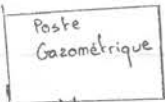 Poste
Gazométrique